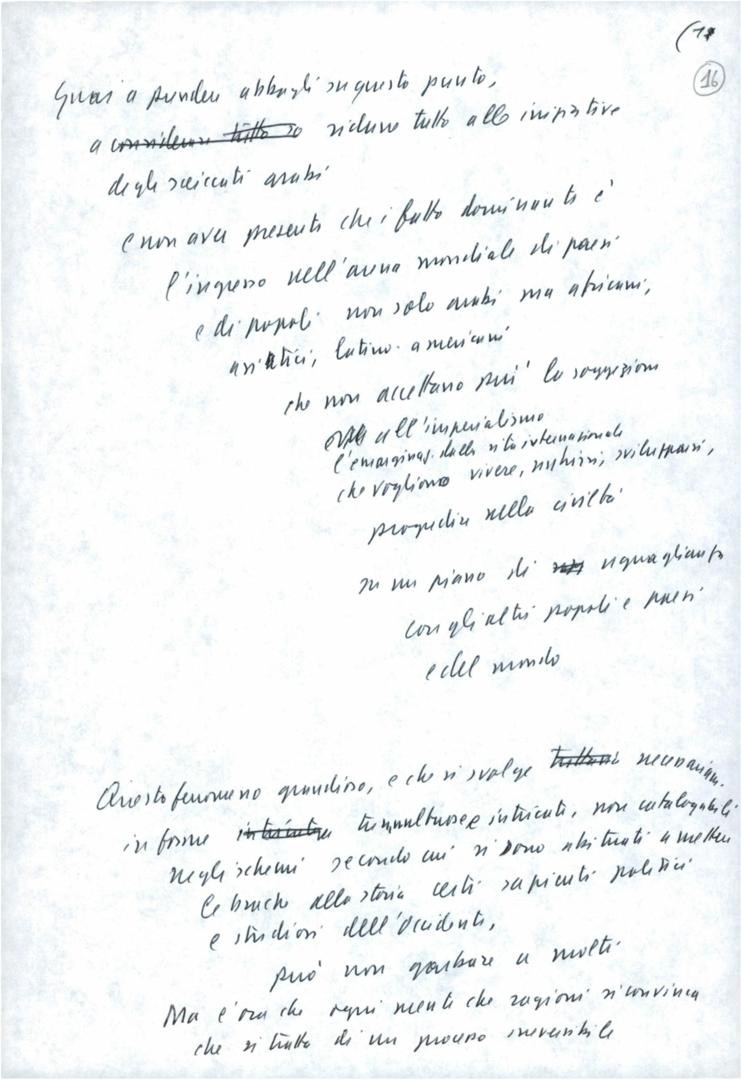 (17
16
Guai a prendere abbagli su questo punto,
a considerare tutto so ridurre tutto alle iniziative
degli sceiccati arabi
e non aver presente che il fatto dominante è
l'ingresso nell'arena mondiale di paesi
e di popoli non solo arabi ma africani,
asiatici, latino-americani
che non accettano più la soggezione
all'imperialismo
l'emarginaz. dalla vita internazionale
che vogliono vivere, nutrirsi, svilupparsi,
progredire nella civiltà
su un piano di uguaglianza
con gli altri popoli e paesi
e del mondo
Questo fenomeno grandioso, e che si svolge necessariam.
in forme intricate tumultuose e intricate, non catalogabili
negli schemi secondo cui si sono abituati a mettere
le brache alla storia certi sapienti politici
e studiosi dell'Occidente,
può non garbare a molti.
Ma è ora che ogni mente che ragioni si convinca
che si tratta di un processo irreversibile